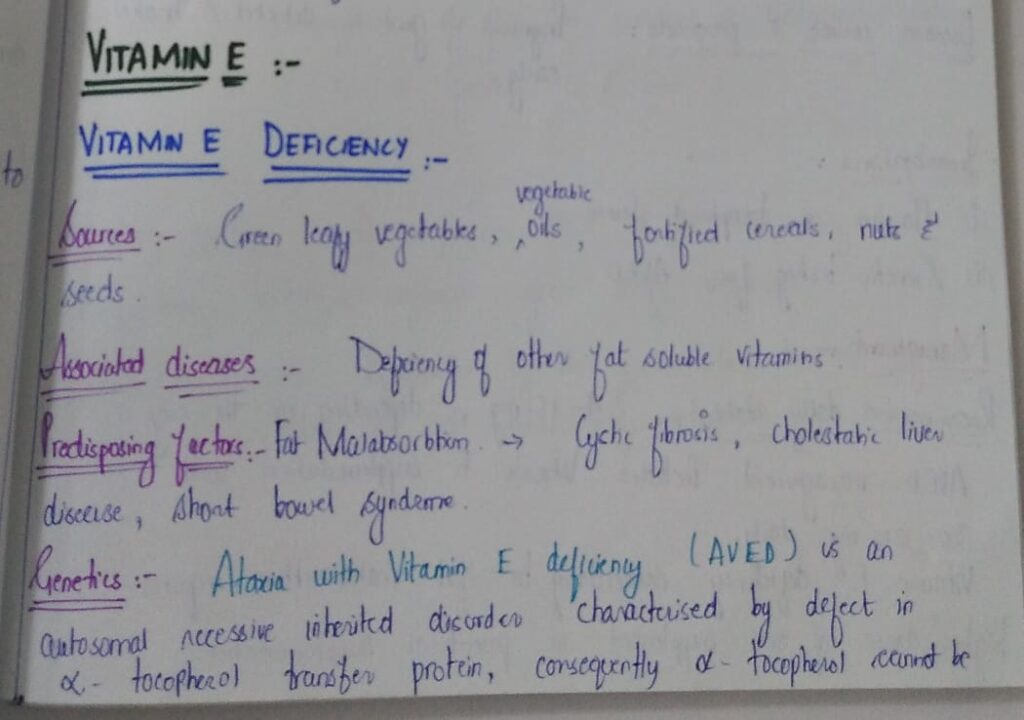 VITAMIN E :-
VITAMIN E DEFICIENCY :-
to
vegetable
Sources :- Green leafy vegetables, ‸oils, fortified cereals, nuts &
seeds.
Associated diseases :- Deficiency of other fat soluble vitamins
Predisposing factors:- Fat Malabsorbtion. → Cystic fibrosis, cholestatic liver
disease, short bowel syndrome.
Genetics :- Ataxia with Vitamin E deficiency (AVED) is an
autosomal recessive inherited disorder characterised by defect in
α- tocopherol transfer protein, consequently α- tocopherol cannot be